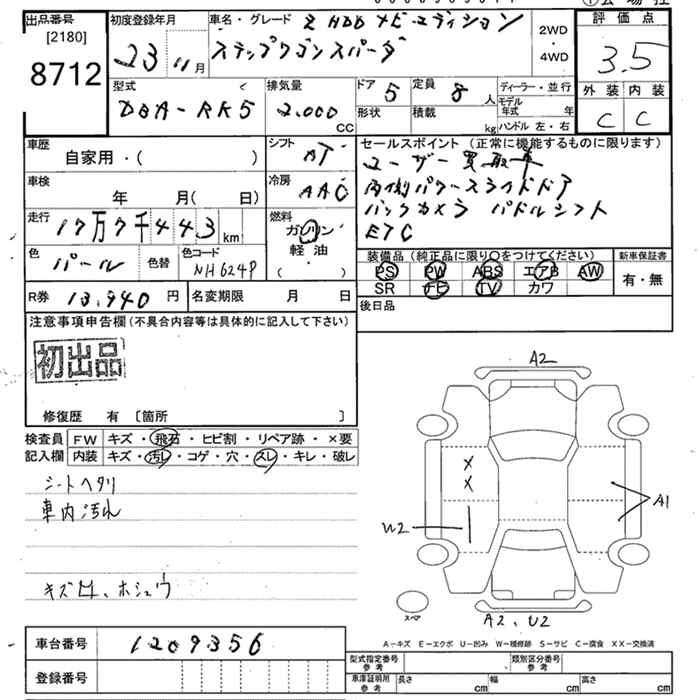 出品番号
[2180]
8712
初度登録年月
23 11月
車名・グレード Z HDDナビエディション
ステップワゴンスパーダ
2WD
・
4WD
評価点
3.5
外装 内装
C C
型式
DBA-RK5
排気量
2.000
CC
ドア 5
形状
定員 8 人
積載 kg
ディーラー・並行
モデル年式 年
ハンドル 左・右
車歴
自家用・( )
シフト
AT
車検
年 月( 日)
冷房
AAC
走行
17万7千443 km
燃料
ガソリン
軽・油
( ・ )
色
パール
色替
色コード
NH624P
R券 13.940 円
名変期限 月 日
セールスポイント (正常に機能するものに限ります)
ユーザー買取車
両側パワースライドドア
バックカメラ パドルシフト
ETC
装備品 (純正品に限り○をつけてください)
PS PW ABS エアB AW
SR ナビ TV カワ
新車保証書
有・無
後日品
注意事項申告欄(不具合内容等は具体的に記入して下さい)
初出品
修復歴 有 〔箇所 〕
検査員 FW キズ・飛石・ヒビ割・リペア跡・×要
記入欄 内装 キズ・汚レ・コゲ・穴・スレ・キレ・破レ
シートヘタリ
車内汚れ
キズ凹、ホシュウ
A2
X
X
U2
A1
スペア
A2、U2
A−キズ E−エクボ U−凹み W−補修跡 S−サビ C−腐食 XX−交換済
車台番号 1209356
登録番号
型式指定番号
参考
類別区分番号
参考
車庫証明用
参考
長さ cm 幅 cm 高さ cm